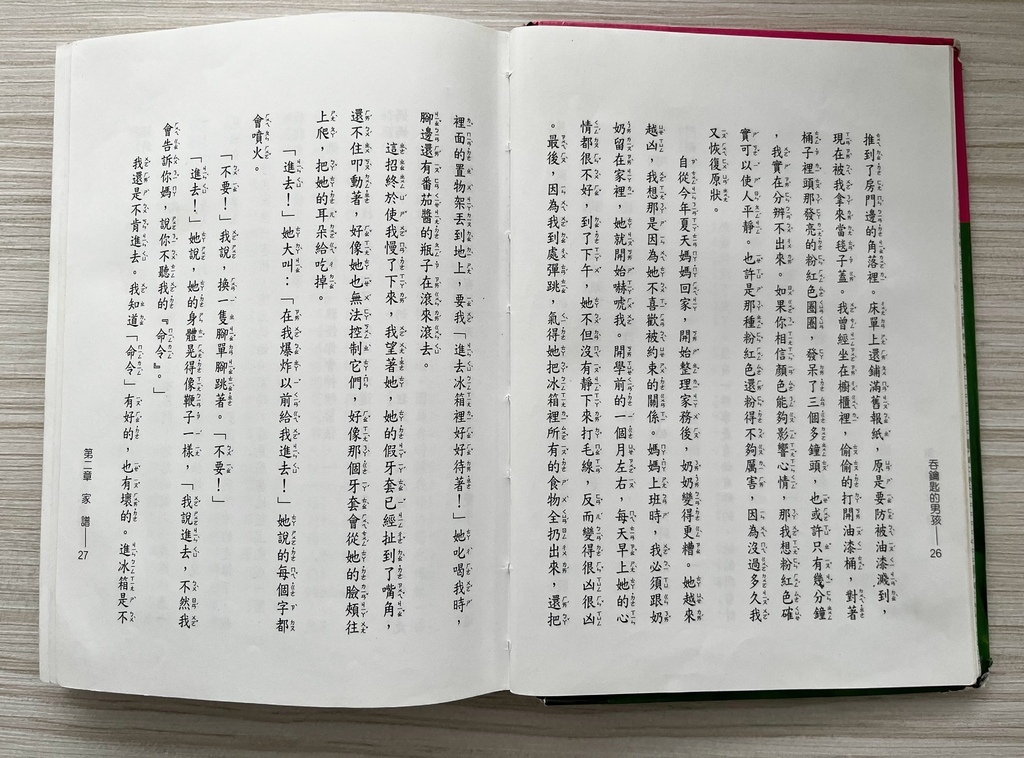 推到了房門邊的角落裡。床單上還鋪滿舊報紙，原是要防被油漆濺到，
現在被我拿來當毯子蓋。我曾經坐在櫥櫃裡，偷偷的打開油漆桶，對著
桶子裡頭那發亮的粉紅色圈圈，發呆了三個多鐘頭，也或許只有幾分鐘
，我實在分辨不出來。如果你相信顏色能夠影響心情，那我想粉紅色確
實可以使人平靜。也許是那種粉紅色還粉得不夠厲害，因為沒過多久我
又恢復原狀。
自從今年夏天媽媽回家，開始整理家務後，奶奶變得更糟。她越來
越凶，我想那是因為她不喜歡被約束的關係。媽媽上班時，我必須跟奶
奶留在家裡，她就開始嚇唬我。開學前的一個月左右，每天早上她的心
情都很不好，到了下午，她不但沒有靜下來打毛線，反而變得很凶很凶
。最後，因為我到處彈跳，氣得她把冰箱裡所有的食物全扔出來，還把
吞鑰匙的男孩——26
裡面的置物架丟到地上，要我「進去冰箱裡好好待著！」她吆喝我時，
腳邊還有番茄醬的瓶子在滾來滾去。
這招終於使我慢了下來，我望著她，她的假牙套已經扯到了嘴角，
還不住叩動著，好像她也無法控制它們，好像那個牙套會從她的臉頰往
上爬，把她的耳朵給吃掉。
「進去！」她大叫：「在我爆炸以前給我進去！」她說的每個字都
會噴火。
「不要！」我說，換一隻腳單腳跳著。「不要！」
「進去！」她說，她的身體晃得像鞭子一樣，「我說進去，不然我
會告訴你媽，說你不聽我的『命令』。」
我還是不肯進去。我知道「命令」有好的，也有壞的。進冰箱是不
第二章 家 譜——27